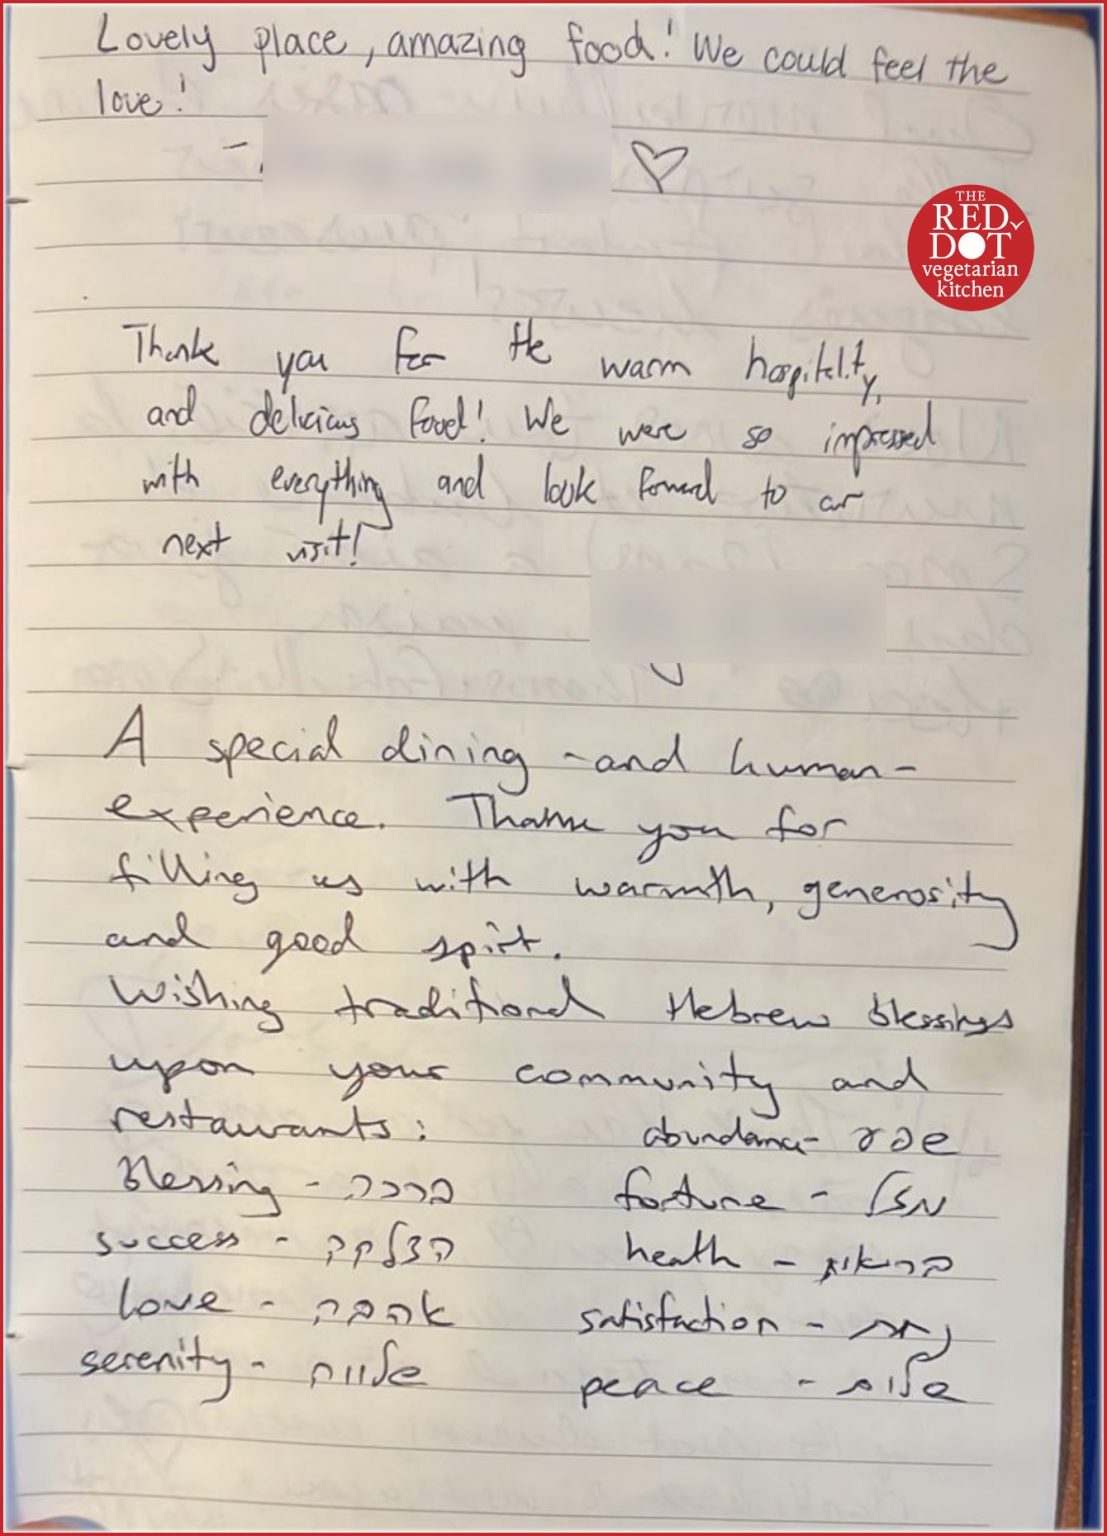 Lovely place, amazing food! We could feel the
love!
THE
RED
DOT
vegetarian
kitchen
Thank you for the warm hospitality,
and delicious food! We were so impressed
with everything and look forward to our
next visit!
A special dining -and human-
experience. Thank you for
filling us with warmth, generosity
and good spirit.
Wishing traditional Hebrew blessings
upon your community and
restaurants:
abundance - שפע
Blessing - ברכה
fortune - מזל
success - הצלחה
health - בריאות
love - אהבה
satisfaction - נחת
serenity - שלווה
peace - שלום